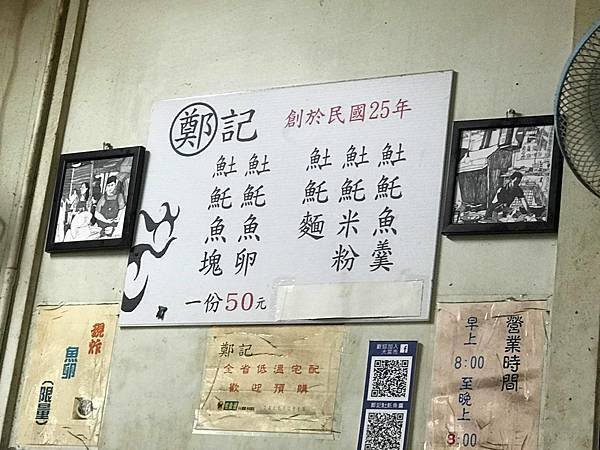 鄭記 創於民國25年
魠魠魚羹
魠魠米粉
魠魠麵
魠魠魚卵
魠魠魚塊
一份50元
現炸
魚卵
(限量)
鄭記
全省低溫宅配
歡迎預購
歡迎加入
營業時間
早上
8:00
至晚上